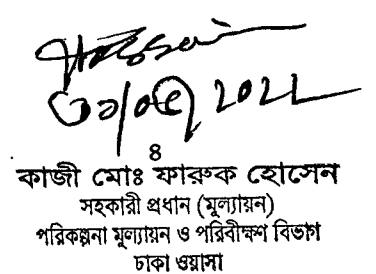 ৪
কাজী মোঃ ফারুক হোসেন
সহকারী প্রধান (মূল্যায়ন)
পরিকল্পনা মূল্যায়ন ও পরিবীক্ষণ বিভাগ
ঢাকা ওয়াসা